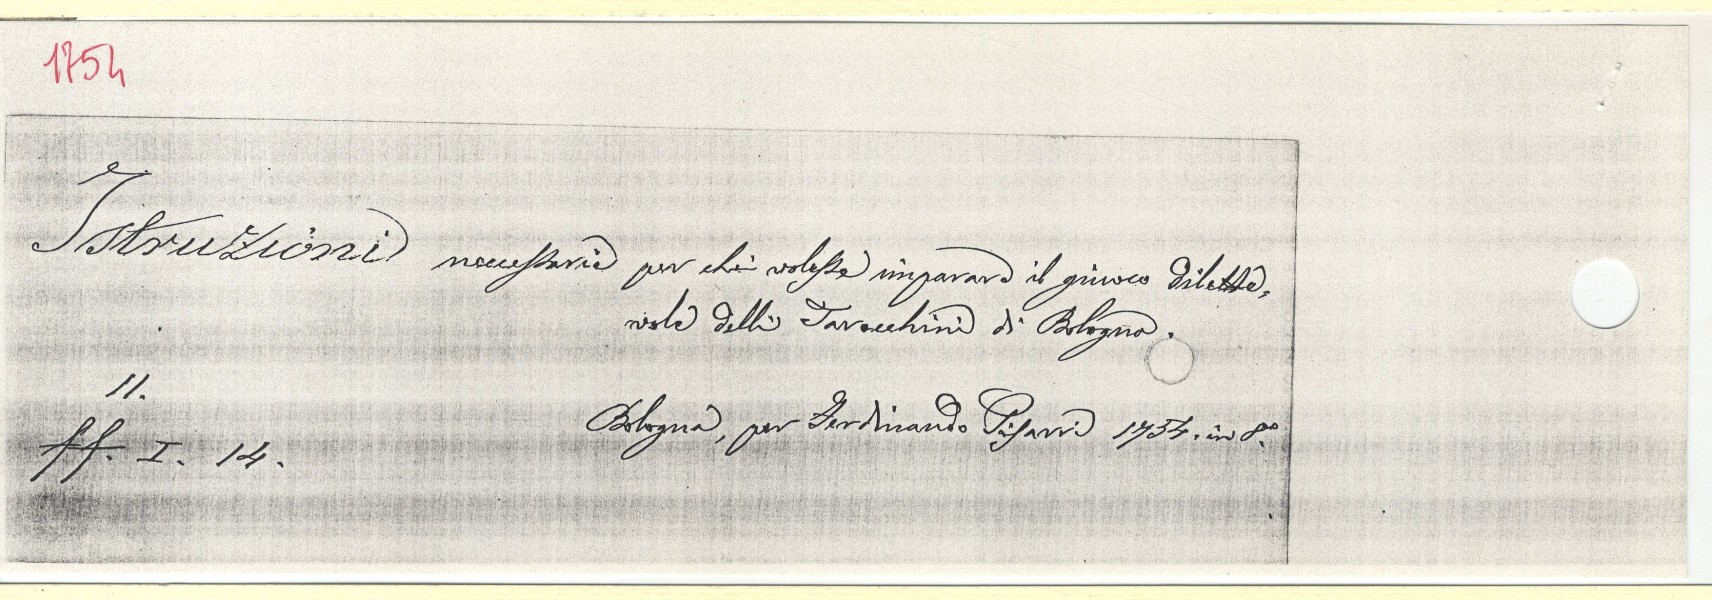 1754
Istruzioni necessarie per chi volesse imparare il giuoco dilette,
vole delli Tarocchini di Bologna.
11.
ff. I. 14.
Bologna, per Ferdinando Pisarri 1754. in 8°